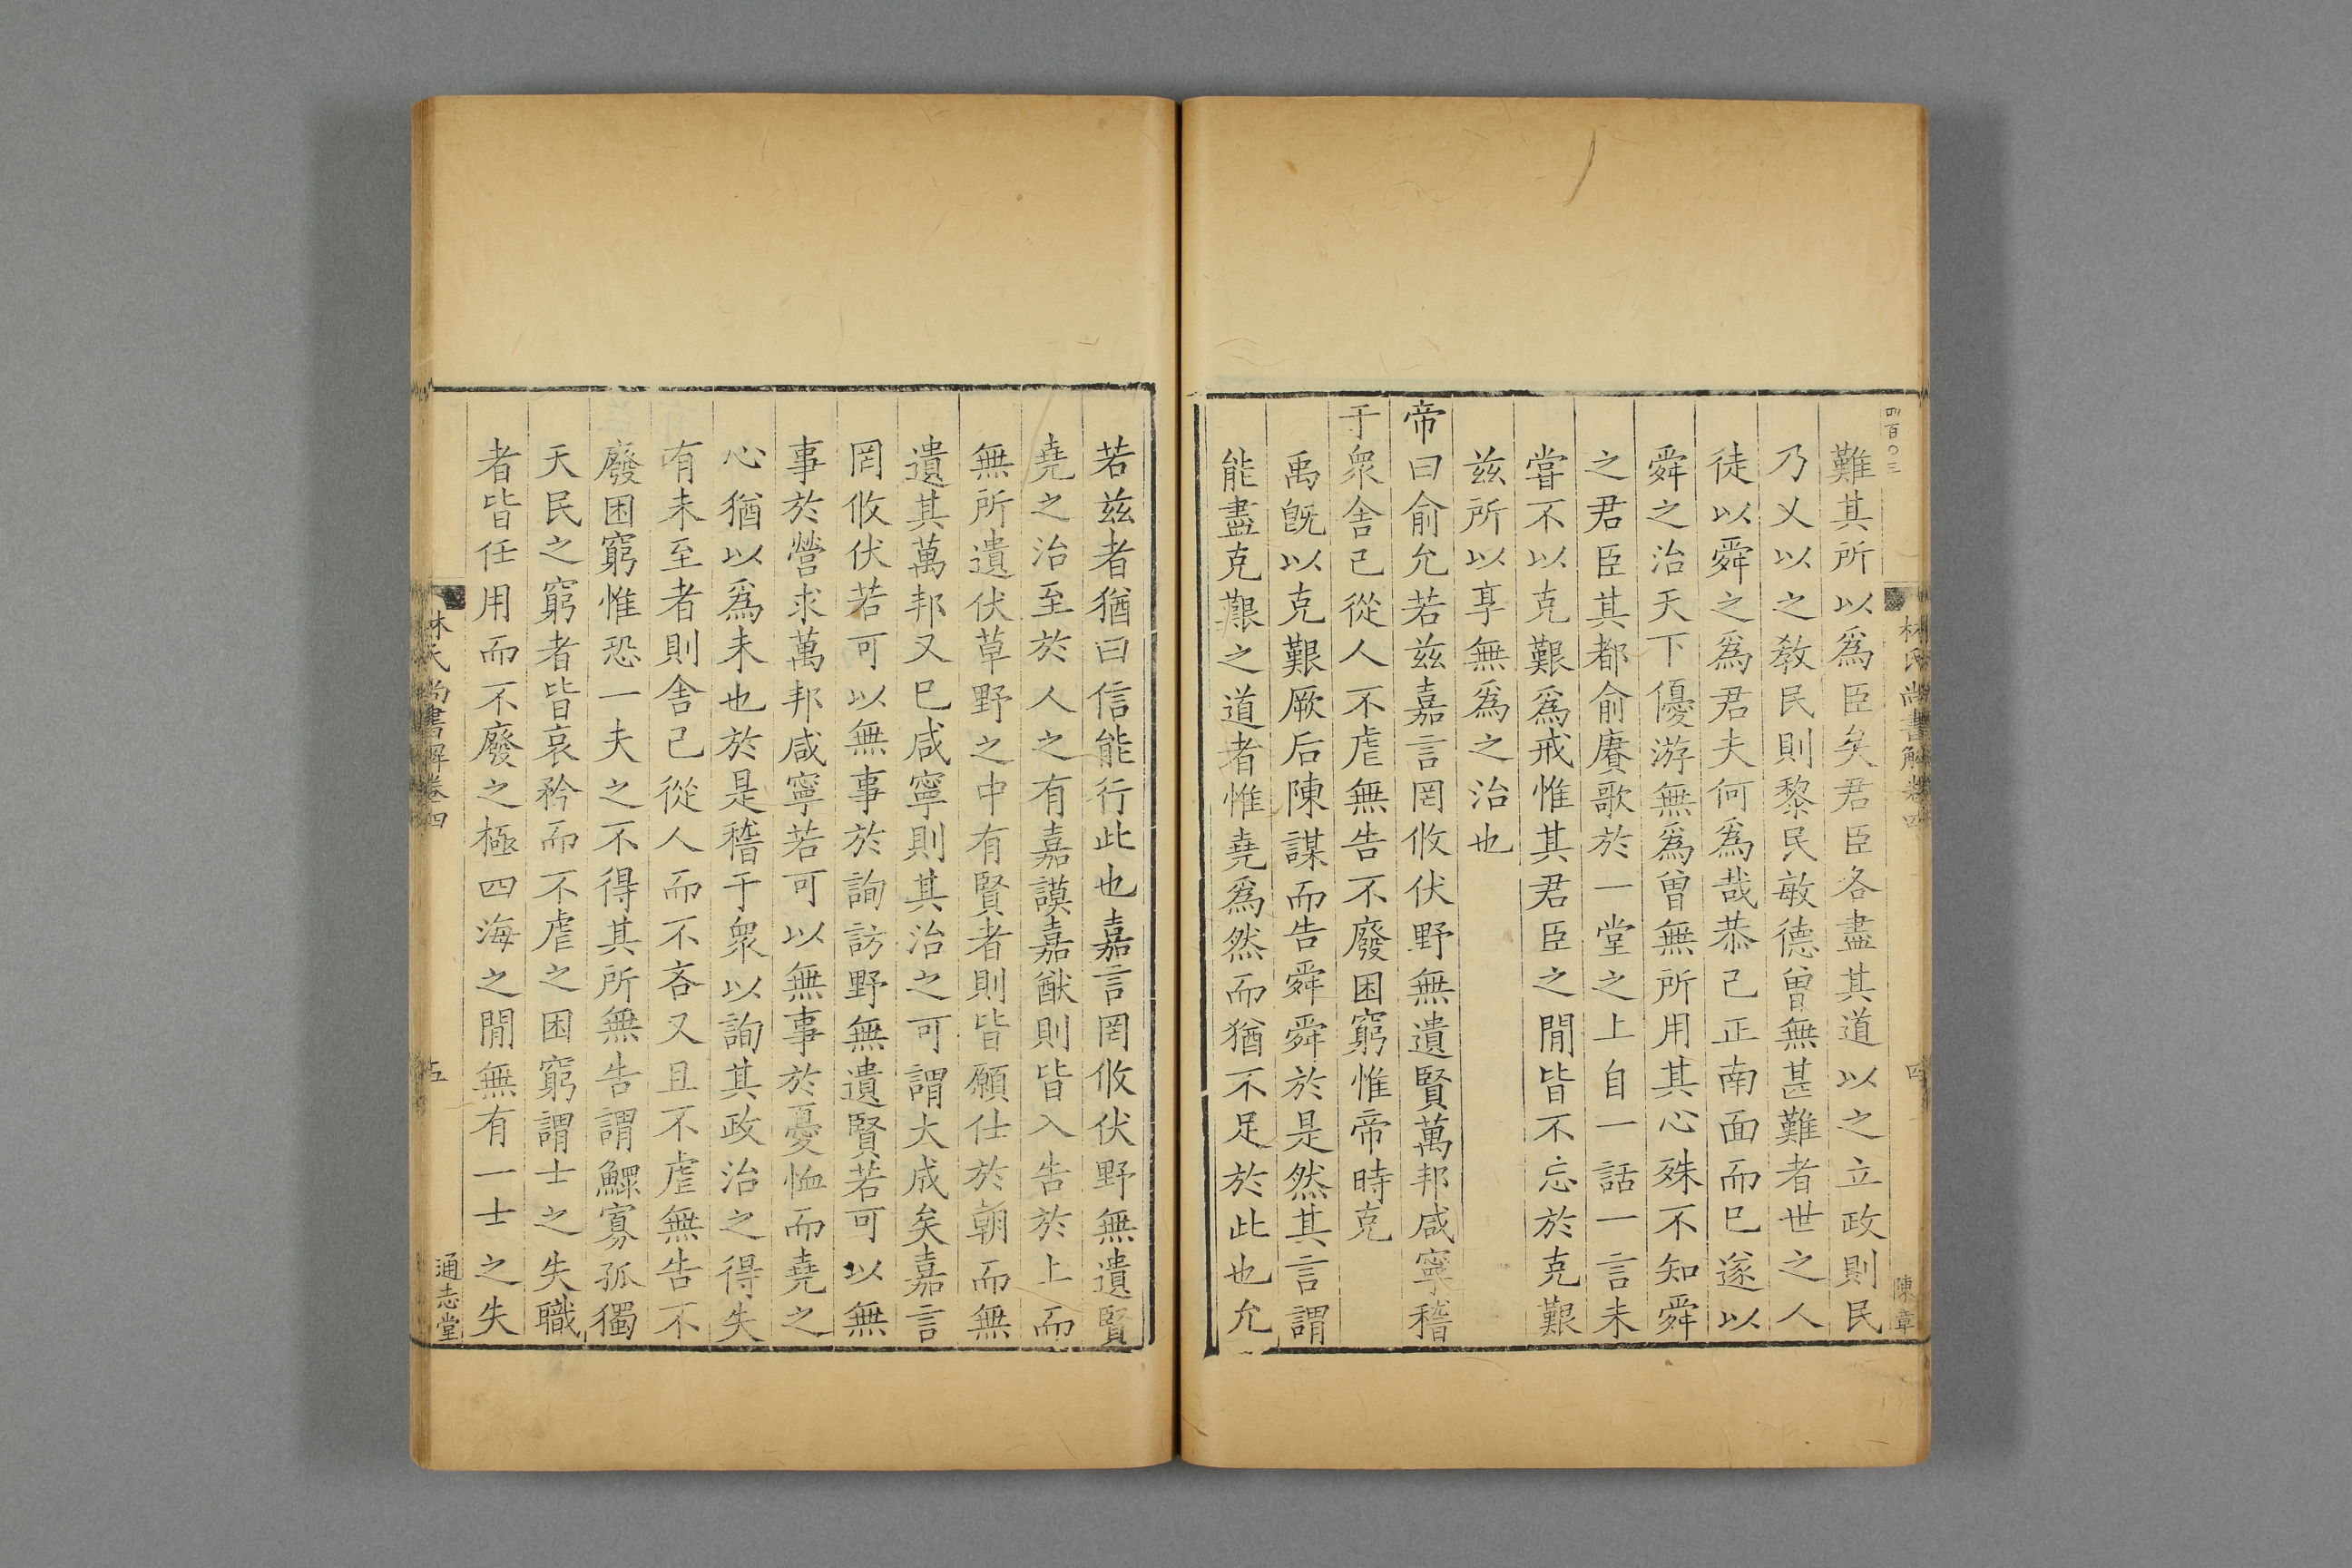 四百〇三
林氏尚書解卷四
四
陳章
難其所以爲臣矣君臣各盡其道以之立政則民
乃乂以之敎民則黎民敏德曾無甚難者世之人
徒以舜之爲君夫何爲哉恭己正南面而巳遂以
舜之治天下優游無爲曾無所用其心殊不知舜
之君臣其都俞賡歌於一堂之上自一話一言未
嘗不以克艱爲戒惟其君臣之閒皆不忘於克艱
兹所以享無爲之治也
帝曰俞允若兹嘉言罔攸伏野無遺賢萬邦咸寧稽
于衆舍己從人不虐無告不廢困窮惟帝時克
禹旣以克艱厥后陳謀而告舜舜於是然其言謂
能盡克艱之道者惟堯爲然而猶不足於此也允
若兹者猶曰信能行此也嘉言罔攸伏野無遺賢
堯之治至於人之有嘉謨嘉猷則皆入告於上而
無所遺伏草野之中有賢者則皆願仕於朝而無
遺其萬邦又巳咸寧則其治之可謂大成矣嘉言
罔攸伏若可以無事於詢訪野無遺賢若可以無
事於營求萬邦咸寧若可以無事於憂恤而堯之
心猶以爲未也於是稽于衆以詢其政治之得失
有未至者則舍己從人而不吝又且不虐無告不
廢困窮惟恐一夫之不得其所無告謂鰥寡孤獨
天民之窮者皆哀矜而不虐之困窮謂士之失職
者皆任用而不廢之極四海之閒無有一士之失
林氏尚書解卷四
五
通志堂